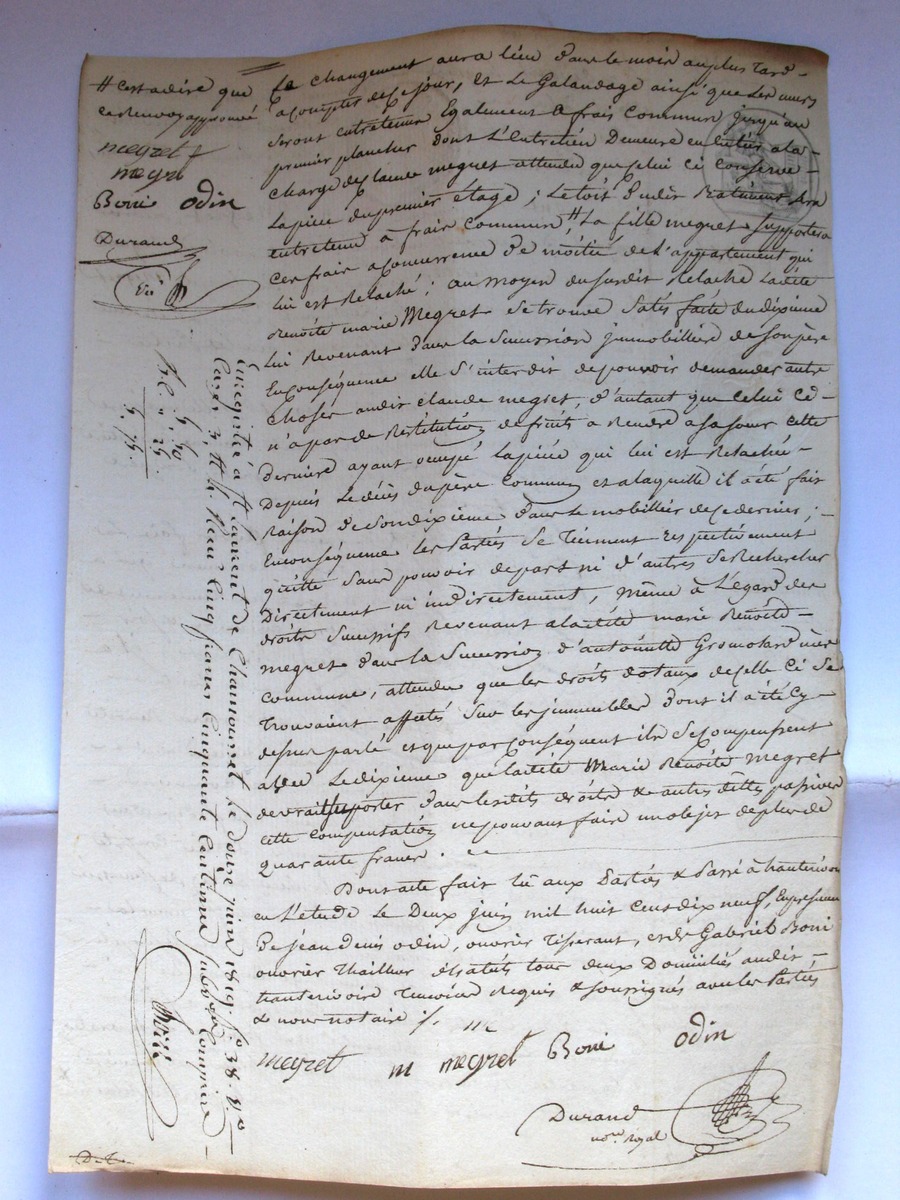 # c'est a dire que
ce renvoy approuvé
megret
megret
Boni odin
Durand
Le changement aura lieu dans le mois au plus tard
a compter de ce jour, et Le Galandage ainsi que les murs
seront entretenus Egalement a frais Commun jusqu'au
premier plancher dont L'Entretien Demeure en entier a la
charge de Claude megret attendu que celui ci conserve
La pièce du premier étage ; Le toit Dudit Batiment sera
entretenu a frais Commun, # La fille megret supportera
ces frais a concurrence De moitié de l'appartement qui
lui est Relaché ; au moyen du susdit Relaché Ladite
Renoite marie Megret se trouve satisfaite du dixieme
lui Revenant Dans la Succession jmmobillière de son père
En conséquence elle s'interdit de pouvoir demander autre
choses audit claude megret, d'autant que celui ci
n'a pas de Restitution de fruits a Rendre a sa sœur cette
derniere ayant occupé la pièce qui lui est Relachée
Depuis Le décès du père Commun et a laquelle il a été fait
Raison De son dixieme dans le mobillier de ce dernier ;
En conséquence les Parties se tiennent Respectivement
quitte sans pouvoir de part ni d'autres se Rechercher
Directement ni indirectement, même à L'égard des
droits Successifs Revenant a ladite marie Renoite
megret dans la Succession d'antoinette Gromolard mère
commune, attendu que les droits dotaux de celle ci se
trouvaient affectés sur les jmmeubles Dont il a été Cy
dessus parlé et que par conséquent ils se compensent
avec Le dixieme que ladite Marie Renoite megret
devrait supporter dans lesdits droits & autres dettes passives
cette Compensation ne pouvant faire un objet de plus de
quarante francs.
Dont acte fait lu aux Parties & Passé à hauterivoire
en L'etude Le Deux juin mil huit cent dix neuf, En presence
De jean denis odin, ouvrier tisserant, et de Gabriel Boni
ouvrier thailleur d'habits tous deux Domiciliés audit
hauterivoire Temoins Requis & soussignés avec les Parties
& nous notaire
megret m megret Boni odin
Durand
no.re royal
Enregistré à St Laurent de Chamousset le douze juin 1819 f.o 38 R.o
Case 3, Reçu Cinq francs Cinquante Centimes Subv.on Comprise
5. 50
25
5. 75